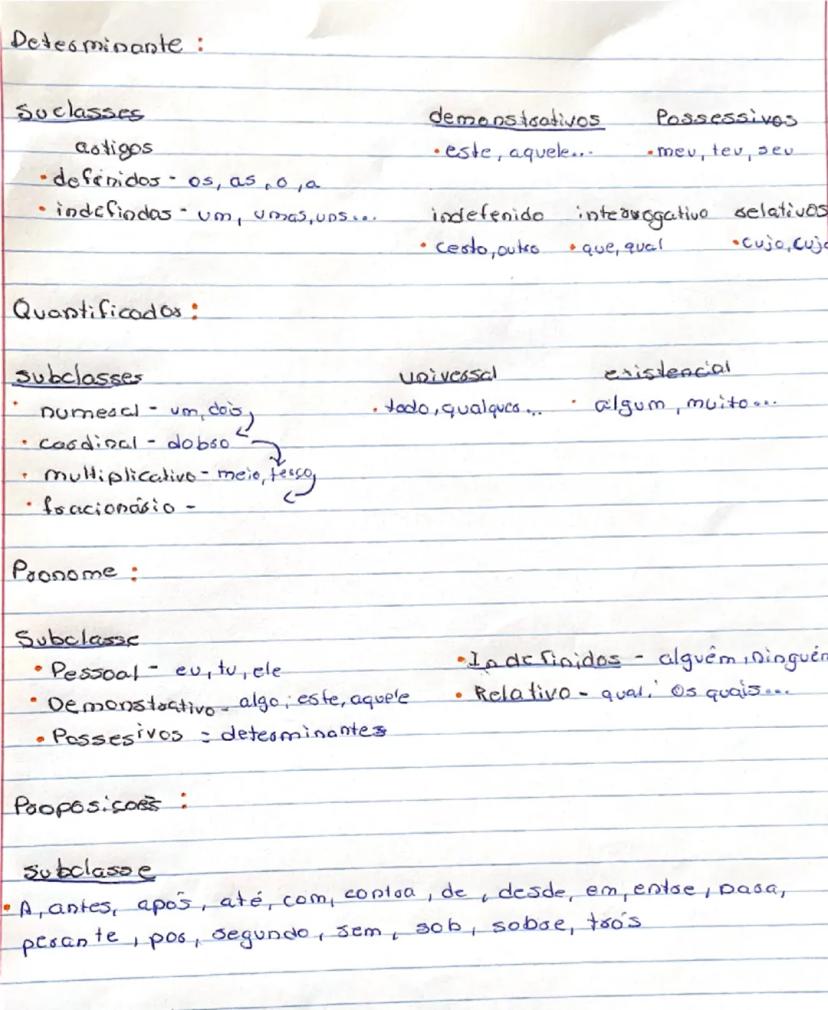 Determinante :
Suclasses
demonstrativos Possessivos
artigos
• este, aquele... • meu, teu, seu
• defenidos - os, as, o, a
• indefindos - um, umas, uns...
indefenido interrogativo relativos
• certo, outro • que, qual • cujo, cuja
Quantificador :
Subclasses
universal existencial
• numeral - um, dois
• todo, qualquer... • algum, muito...
• cardinal - dobro
• multiplicativo - meio, terço
• fracionário -
Pronome :
Subclasse
• Pessoal - eu, tu, ele
• Indefinidos - alguém, ninguém
• Demonstrativo - algo, este, aquele
• Relativo - qual, os quais...
• Possesivos = determinantes
Proposiçoẽs :
Subclasse
• A, antes, após, até, com, contra, de, desde, em, entre, para,
perante, por, segundo, sem, sob, sobre, trós